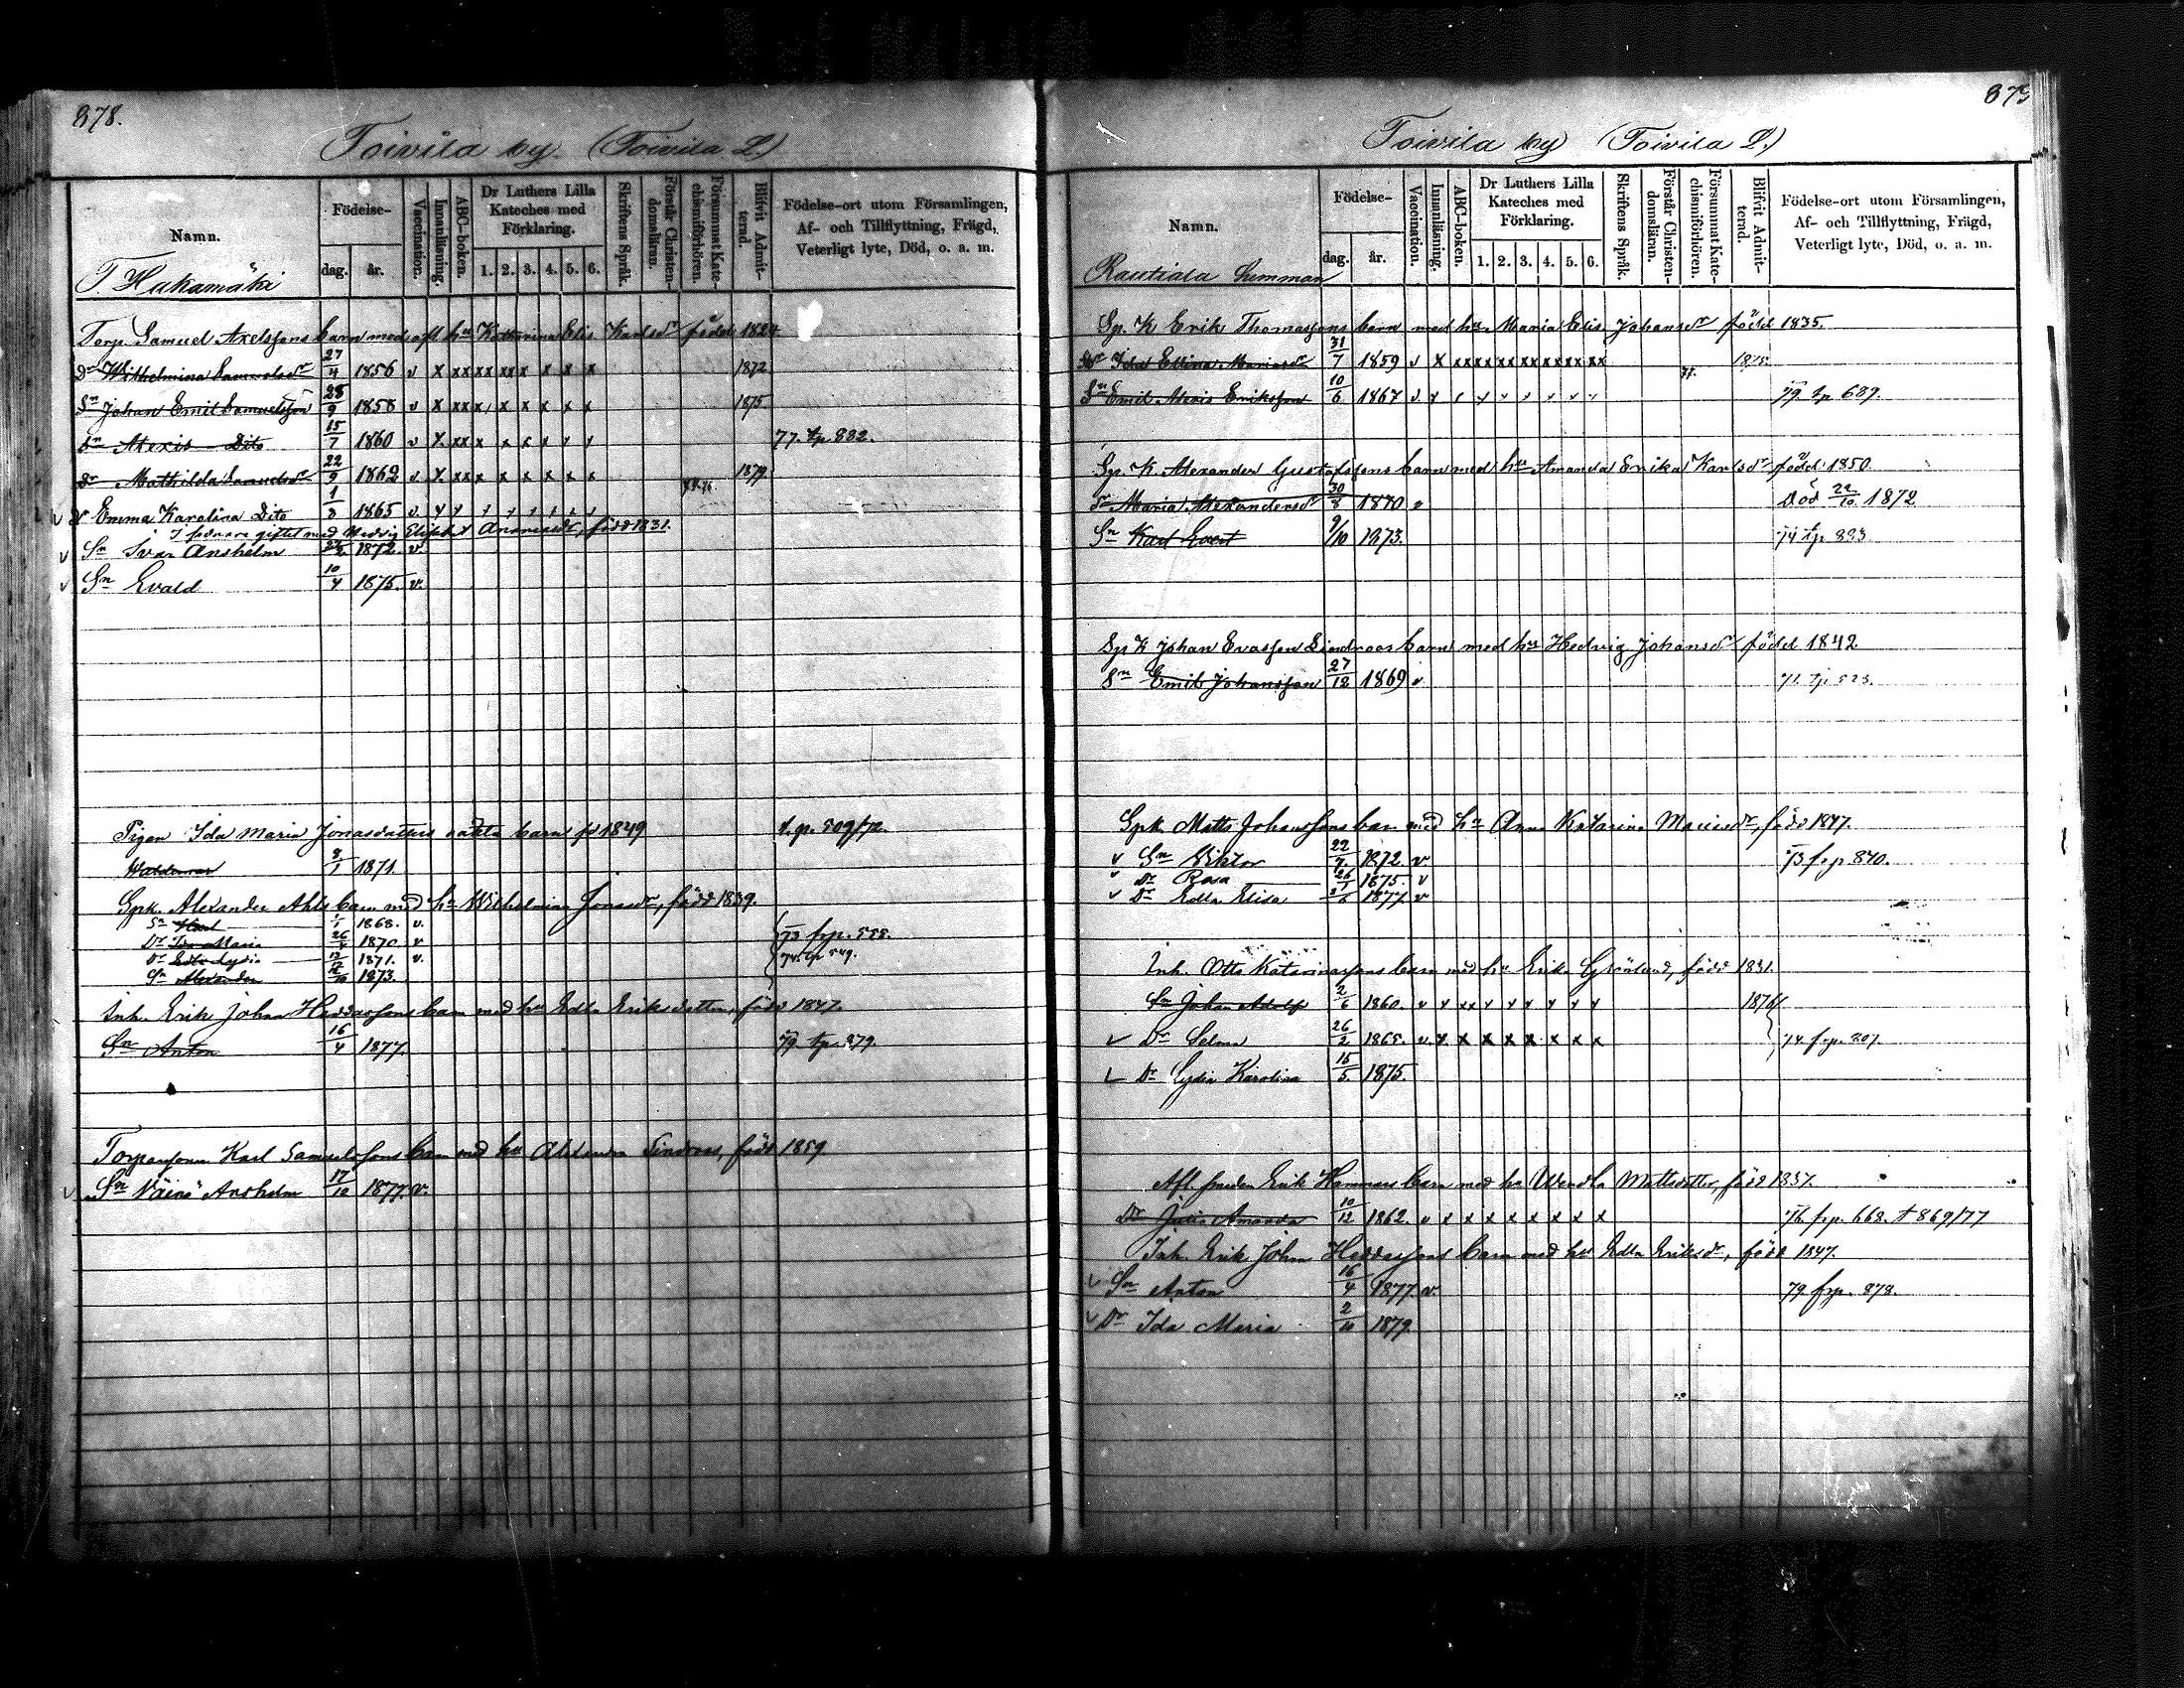 878.
Toivila by. (Toivila L.)
Namn.
Födelse-
dag.
år.
Vaccination.
Innanläsning.
ABC-boken.
Dr Luthers Lilla
Kateches med
Förklaring.
1. 2. 3. 4. 5. 6.
Skriftens Språk.
Förstår Christen-
domsläran.
Försummat Kate-
chismiförhören.
Blifvit Admit-
terad.
Födelse-ort utom Församlingen,
Af- och Tillflyttning, Frägd,
Veterligt lyte, Död, o. a. m.
T. Hakamäki
Torp. Samuel Axelssons barn med afl hu Katharina Elis Karlsdr född 1824
Dr Wilhelmina Samuelsdr 27/4 1856 v x xx xx xx x x x 1872
Sn Johan Emil Samuelsson 28/9 1858 v x xx x x x x x 1875
Sn Alexis Dito 15/7 1860 v x xx x x x x x x 77. tp 882.
Dr Mathilda Samuelsdr 22/9 1862 v x xx x x x x x x 1879
Dr Emma Karolina Dito 1/3 1865 v x x x x x x x x
I sednare giftet med Hedvig Elisabet Andersdr, född 1831.
Sn Ivar Anshelm 1872. v.
Sn Evald 10/4 1875. v.
Pigan Ida Maria Jonasdotters oäkta barn fd 1849 t. p. 509/72.
Waldemar 8/1 1871.
Spk. Alexander Ahls barn med hu Wilhelmina Jonasdr, född 1839.
Sn Karl 1/1 1868. v.
Dr Ida Maria 26/4 1870 v 73 frp. 558.
Dr Edla Lydia 1871. v. 74. tp 549.
Sn Alexander 1873.
Inh. Erik Johan Heddassons barn med hu Edla Eriksdotter, född 1847.
Sn Anton 16/4 1877. 79 tp. 879.
Torparsonen Karl Samuelssons barn med hu Alexandra Sindroos, född 1859
Sn Väinö Anshelm 17/10 1877. v.
879
Toivila by (Toivila L.)
Namn.
Födelse-
dag.
år.
Vaccination.
Innanläsning.
ABC-boken.
Dr Luthers Lilla
Kateches med
Förklaring.
1. 2. 3. 4. 5. 6.
Skriftens Språk.
Förstår Christen-
domsläran.
Försummat Kate-
chismiförhören.
Blifvit Admit-
terad.
Födelse-ort utom Församlingen,
Af- och Tillflyttning, Frägd,
Veterligt lyte, Död, o. a. m.
Rautiala hemman
Sp. K Erik Thomassons barn med hu Maria Elis Johansdr född 1835.
Dr Ida Ellina Mariasdr 31/7 1859 v x xx xx xx xx xx xx xx 1875.
Sn Emil Alexis Eriksson 10/6 1867 v x x x x x x x 79. tp 689.
Sp. K. Alexander Gustafssons barn med hu Amanda Erika Karlsdr född 1850.
Dr Maria Alexandersdr 30/8 1870 v död 22/10 1872
Sn Karl Evert 9/10 1873. 74 tp. 893
Sp K Johan Evasson Lindroos barn med hu Hedvig Johansdr född 1842
Sn Emil Johansson 27/12 1869 v 71. tp. 523.
Spk. Matts Johanssons barn med hu Anna Katarina Mariasdr, född 1847.
Sn Viktor 22/7 1872. v 73 frp 870.
Dr Rosa 26/1 1875. v
Dr Edla Elisa 1877 v
Inh. Otto Katarinassons barn med hu Erika Grönlund, född 1831.
Sn Johan Adolf 2/6 1860. v x xx x x x x x x 1876
Dr Selma 26/2 1865. v. x x x x x x x x 74. frp. 807.
Dr Lydia Karolina 15/5. 1875.
Afl. smeden Erik Hammars barn med hu Wendla Mattsdotter, född 1837.
Dr Julia Amanda 10/12 1862. v x x x x x x x x 76. frp. 668. t 869/77
Inh. Erik Johan Heddassons barn med hu Edla Eriksdr, född 1847.
Sn Anton 16/4 1877. v. 79 frp. 878.
Dr Ida Maria 2/10 1879